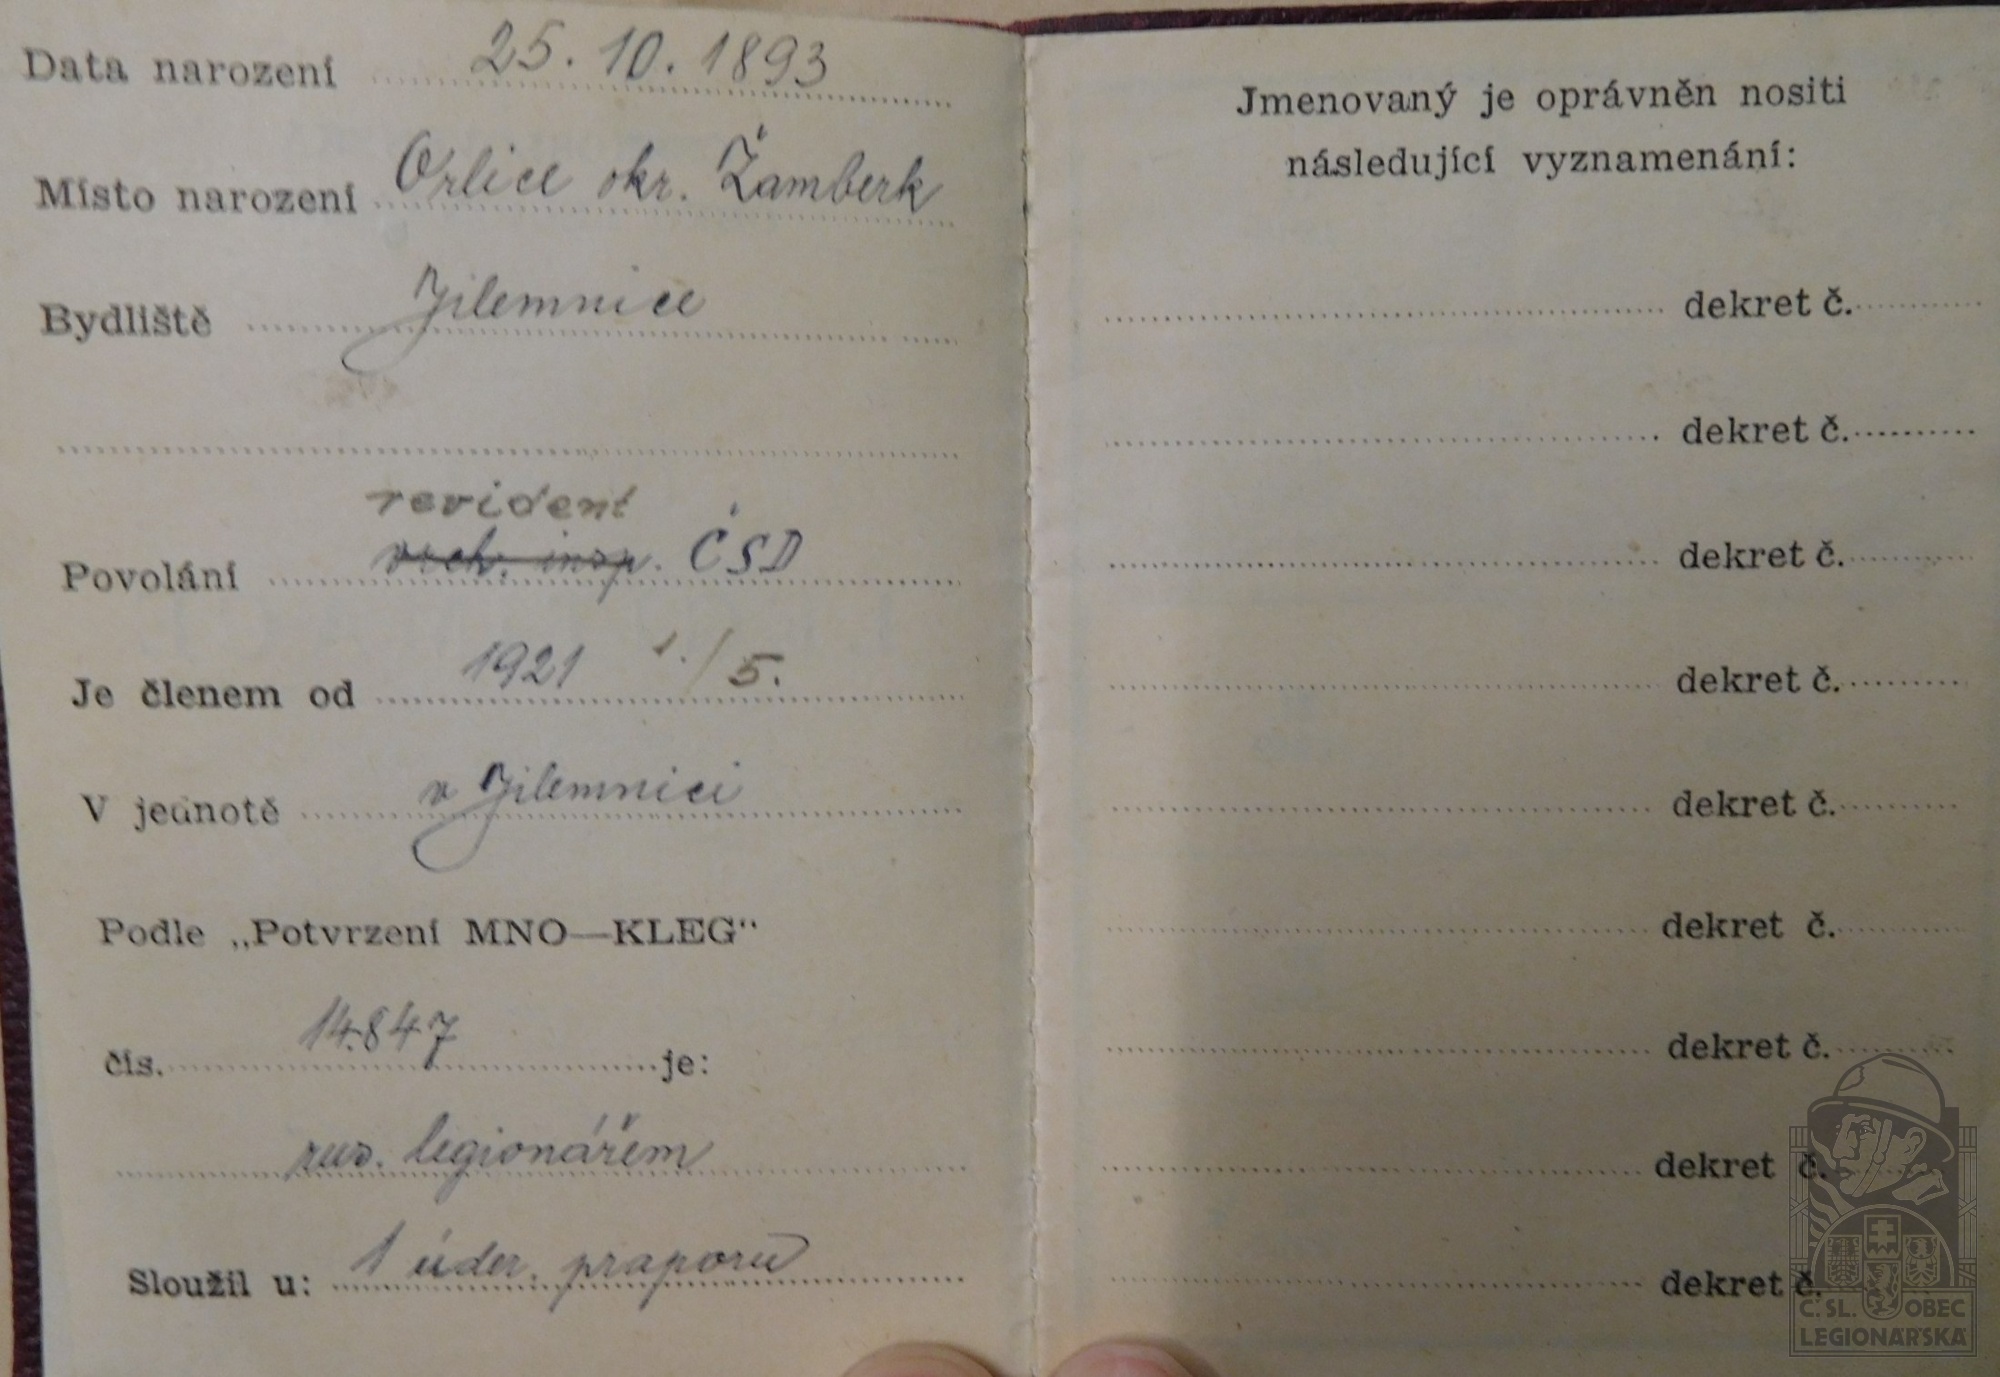 Data narození 25. 10. 1893
Místo narození Orlice okr. Žamberk
Bydliště Jilemnice
revident
Povolání vrch. insp. ČSD
Je členem od 1921 1./5.
V jednotě v Jilemnici
Podle „Potvrzení MNO—KLEG“
čís. 14.847 je:
rus. legionářem
Sloužil u: 1 úder. praporu
Jmenovaný je oprávněn nositi
následující vyznamenání:
dekret č.
dekret č.
dekret č.
dekret č.
dekret č.
dekret č.
dekret č.
dekret č.
dekret č.
Č. SL. OBEC
LEGIONÁŘSKÁ